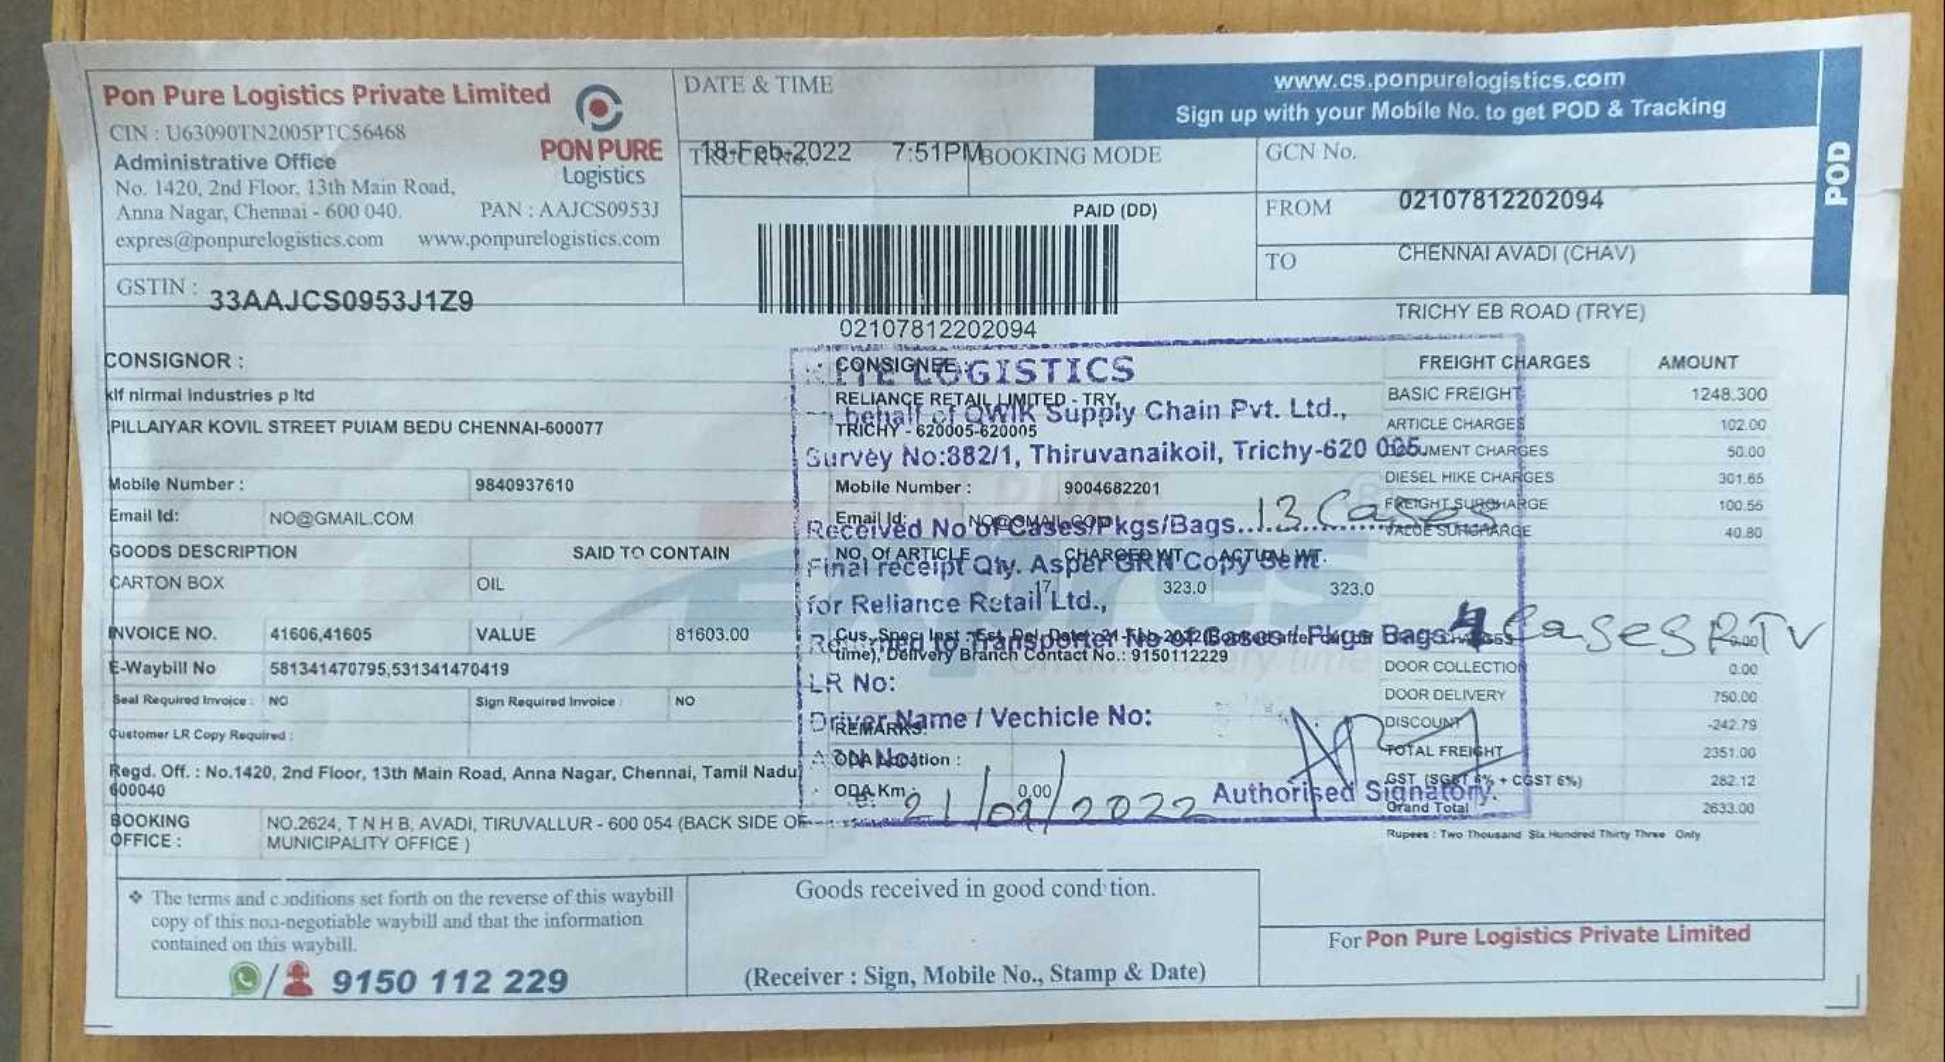 Pon Pure Logistics Private Limited
CIN : U63090TN2005PTC56468
Administrative Office
No. 1420, 2nd Floor, 13th Main Road,
Anna Nagar, Chennai - 600 040. PAN : AAJCS0953J
expres@ponpurelogistics.com www.ponpurelogistics.com
PON PURE
Logistics
GSTIN : 33AAJCS0953J1Z9
DATE & TIME
18-Feb-2022 7:51PM
BOOKING MODE
PAID (DD)
02107812202094
www.cs.ponpurelogistics.com
Sign up with your Mobile No. to get POD & Tracking
POD
GCN No.
02107812202094
FROM
CHENNAI AVADI (CHAV)
TO
TRICHY EB ROAD (TRYE)
CONSIGNOR :
klf nirmal industries p ltd
PILLAIYAR KOVIL STREET PUIAM BEDU CHENNAI-600077
Mobile Number : 9840937610
Email Id: NO@GMAIL.COM
GOODS DESCRIPTION SAID TO CONTAIN
CARTON BOX OIL
INVOICE NO. 41606,41605 VALUE 81603.00
E-Waybill No 581341470795,531341470419
Seal Required Invoice : NO Sign Required Invoice : NO
Customer LR Copy Required :
Regd. Off. : No.1420, 2nd Floor, 13th Main Road, Anna Nagar, Chennai, Tamil Nadu
600040
BOOKING OFFICE : NO.2624, T N H B, AVADI, TIRUVALLUR - 600 054 (BACK SIDE OF
MUNICIPALITY OFFICE )
CONSIGNEE :
RELIANCE RETAIL LIMITED - TRY,
TRICHY - 620005-620005
Mobile Number : 9004682201
Email Id: NO@GMAIL.COM
NO. Of ARTICLE CHARGED WT ACTUAL WT.
17 323.0 323.0
time), Delivery Branch Contact No.: 9150112229
REMARKS:
ODA Location :
ODA Km : 0.00
LOGISTICS
behalf of QWIK Supply Chain Pvt. Ltd.,
Survey No:882/1, Thiruvanaikoil, Trichy-620 005.
Received No of Cases/Pkgs/Bags... 13 Cases
Final receipt Qty. Asper GRN Copy Sent
for Reliance Retail Ltd.,
Transporter No of Cases / Pkgs Bags 4 Cases RTV
LR No:
Driver Name / Vechicle No:
Authorised Signatory.
FREIGHT CHARGES AMOUNT
BASIC FREIGHT 1248.300
ARTICLE CHARGES 102.00
DOCUMENT CHARGES 50.00
DIESEL HIKE CHARGES 301.65
FREIGHT SURCHARGE 100.55
VALUE SURCHARGE 40.80
0.00
DOOR COLLECTION 0.00
DOOR DELIVERY 750.00
DISCOUNT -242.79
TOTAL FREIGHT 2351.00
GST (SGST 6% + CGST 6%) 282.12
Grand Total 2633.00
Rupees : Two Thousand Six Hundred Thirty Three Only
❖ The terms and conditions set forth on the reverse of this waybill
copy of this non-negotiable waybill and that the information
contained on this waybill.
9150 112 229
Goods received in good condition.
(Receiver : Sign, Mobile No., Stamp & Date)
For Pon Pure Logistics Private Limited